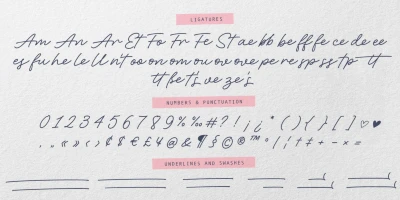 LIGATURES
Am An Ar Et Fo Fr Fe St ae bb be ff fe ce de ee
es fu he le ll n't oo on om ou ov ove pe re rp ss tp tt
tt fe t's ve ze's
NUMBERS & PUNCTUATION
0 1 2 3 4 5 6 7 8 9 % ‰ # ? ! ¡ ¿ * ( ) { } [ ] ♡ ♥
. , « » ‹ › ¢ $ € £ ¥ @ & ¶ § © ® ™ ° | ¦ † ‡ + - × =
UNDERLINES AND SWASHES